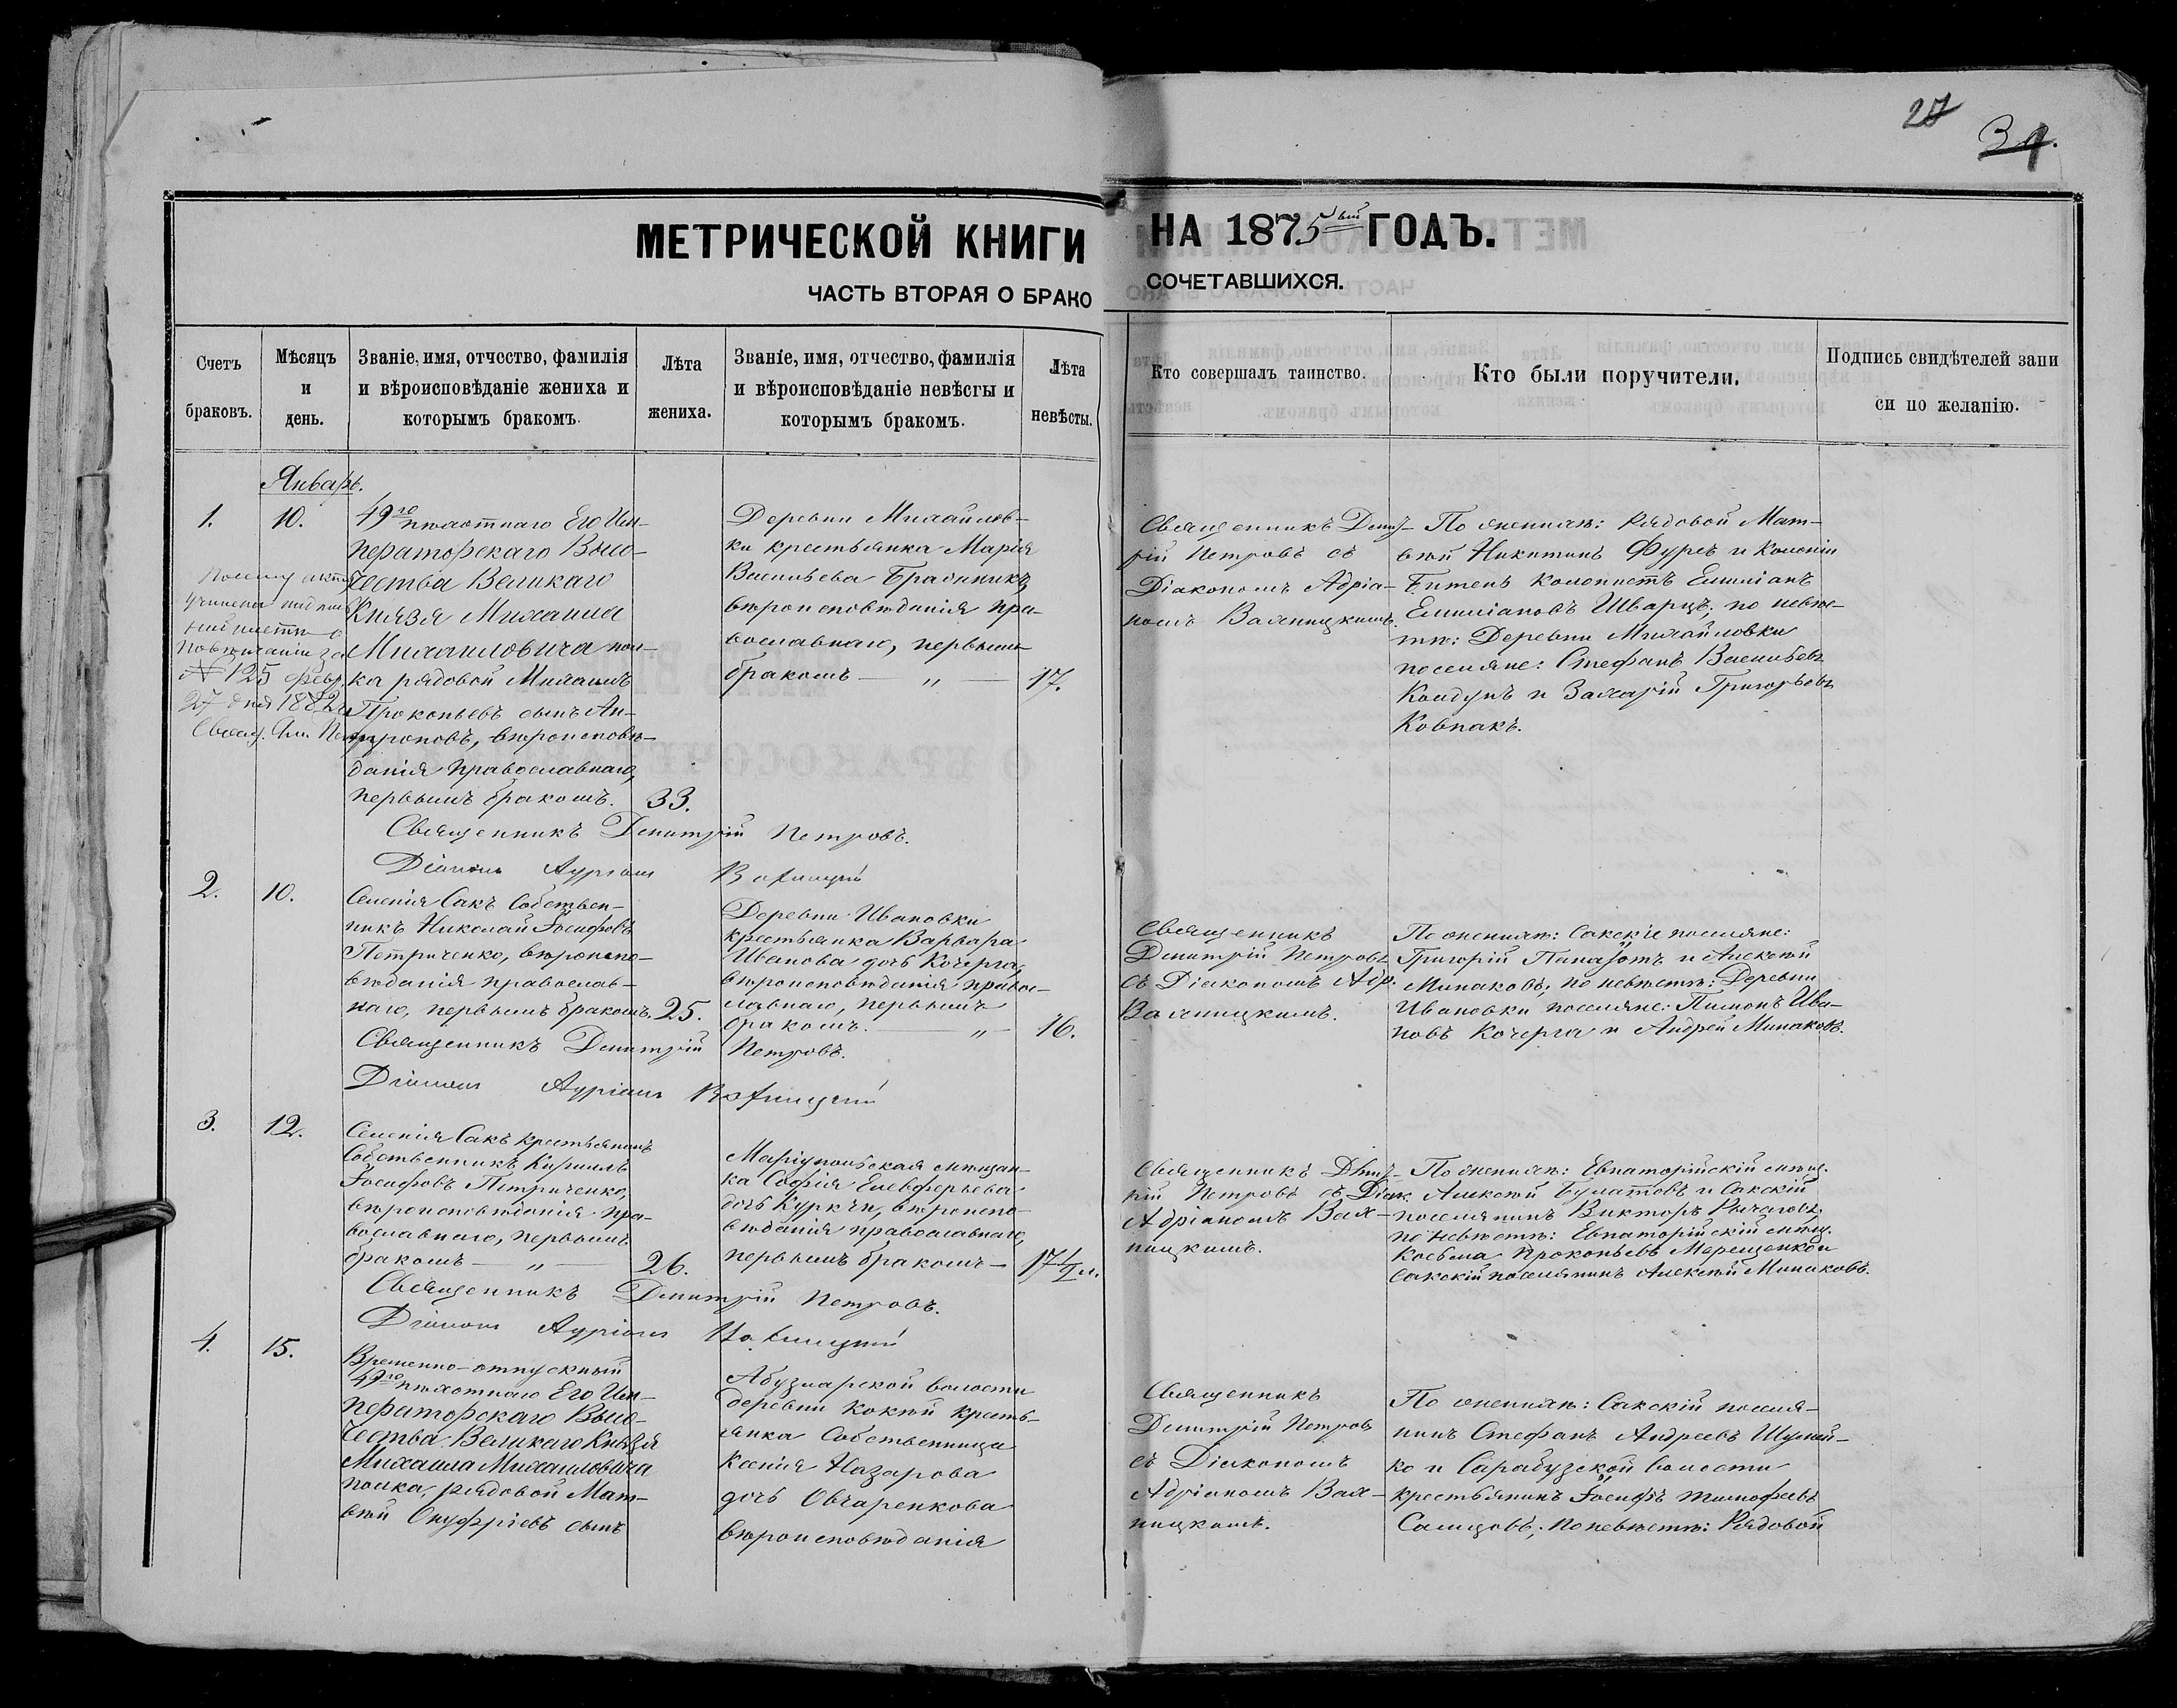 27
34.
МЕТРИЧЕСКОЙ КНИГИ НА 1875ый ГОДЪ.
ЧАСТЬ ВТОРАЯ О БРАКОСОЧЕТАВШИХСЯ.
Счетъ браковъ.
Мѣсяцъ и день.
Званіе, имя, отчество, фамилія
и вѣроисповѣданіе жениха и
которымъ бракомъ.
Лѣта жениха.
Званіе, имя, отчество, фамилія
и вѣроисповѣданіе невѣсты и
которымъ бракомъ.
Лѣта невѣсты.
Кто совершалъ таинство.
Кто были поручители.
Подпись свидѣтелей запи
си по желанію.
Январь.
1.
10.
49го пѣхотнаго Его Им-
ператорскаго Высо-
чества Великаго
Князя Михаила
Михаиловича пол-
ка рядовой Михаилъ
Прокопьевъ сынъ Ан-
троповъ, вѣроисповѣ-
данія православнаго,
первымъ бракомъ.
33.
№ 125 февр.
27 дня 1882
Деревни Михайлов-
ки крестьянка Марія
Васильева
вѣроисповѣданія пра-
вославнаго, первымъ
бракомъ — „ —
17.
Священникъ Димит-
рій Петровъ съ
Діакономъ Адріа-
номъ Вахницкимъ.
По женихѣ: Рядовой Мат-
вѣй Никитинъ Фурсъ и Колоніи
колонистъ Емиліанъ
Емиліановъ Шварцъ; по невѣс-
тѣ: Деревни Михайловки
поселяне: Стефанъ Васильевъ
Колдунъ и Захарій Григорьевъ
Ковпакъ.
Священникъ Димитрій Петровъ.
Діаконъ Адріанъ Вахницкій
2.
10.
Селенія Сакъ Собствен-
никъ Николай Іосифовъ
Петриченко, вѣроиспо-
вѣданія православ-
наго, первымъ бракомъ.
25.
Деревни Ивановки
крестьянка Варвара
Иванова дочь Кочерга,
вѣроисповѣданія право-
славнаго, первымъ
бракомъ. — „ —
16.
Священникъ
Димитрій Петровъ
съ Діакономъ Адр.
Вахницкимъ.
По женихѣ: Сакскіе поселяне:
Григорій Панаіотъ и Алексѣй
Минаковъ; по невѣстѣ: Деревни
Ивановки поселяне: Пимонъ Ива-
новъ Кочерга и Андрей Минаковъ.
Священникъ Димитрій Петровъ.
Діаконъ Адріанъ Вахницкій
3.
12.
Селенія Сакъ крестьянинъ
Собственникъ Кириллъ
Іосифовъ Петриченко,
вѣроисповѣданія пра-
вославнаго, первымъ
бракомъ — „ —
26.
Маріупольская мѣщан-
ка Софія Елевферьева
дочь Куркчи, вѣроиспо-
вѣданія православнаго,
первымъ бракомъ —
17 1/2 л.
Священникъ Дмит-
рій Петровъ съ Діак.
Адріаномъ Вах-
ницкимъ.
По женихѣ: Евпаторійскій мѣщ.
Алексѣй Булатовъ и Сакскій
поселянинъ Викторъ
по невѣстѣ: Евпаторійскій мѣщ.
Косьма Прокопьевъ Мерещенко и
Сакскій поселянинъ Алексѣй Минаковъ.
Священникъ Димитрій Петровъ.
Діаконъ Адріанъ Вахницкій
4.
15.
Временно-отпускный
49го пѣхотнаго Его Им-
ператорскаго Высо-
чества Великаго Князя
Михаила Михаиловича
полка, рядовой Мат-
вѣй Онуфріевъ сынъ
Абузларской волости
деревни Кокѣй кресть-
янка Собственница
Ксенія Назарова
дочь Овчаренкова
вѣроисповѣданія
Священникъ
Димитрій Петровъ
съ Діакономъ
Адріаномъ Вах-
ницкимъ.
По женихѣ: Сакскій поселя-
нинъ Стефанъ Андреевъ Шулей-
ко и Сарабузской волости
крестьянинъ Іосифъ Тимофеевъ
по невѣстѣ: Рядовой